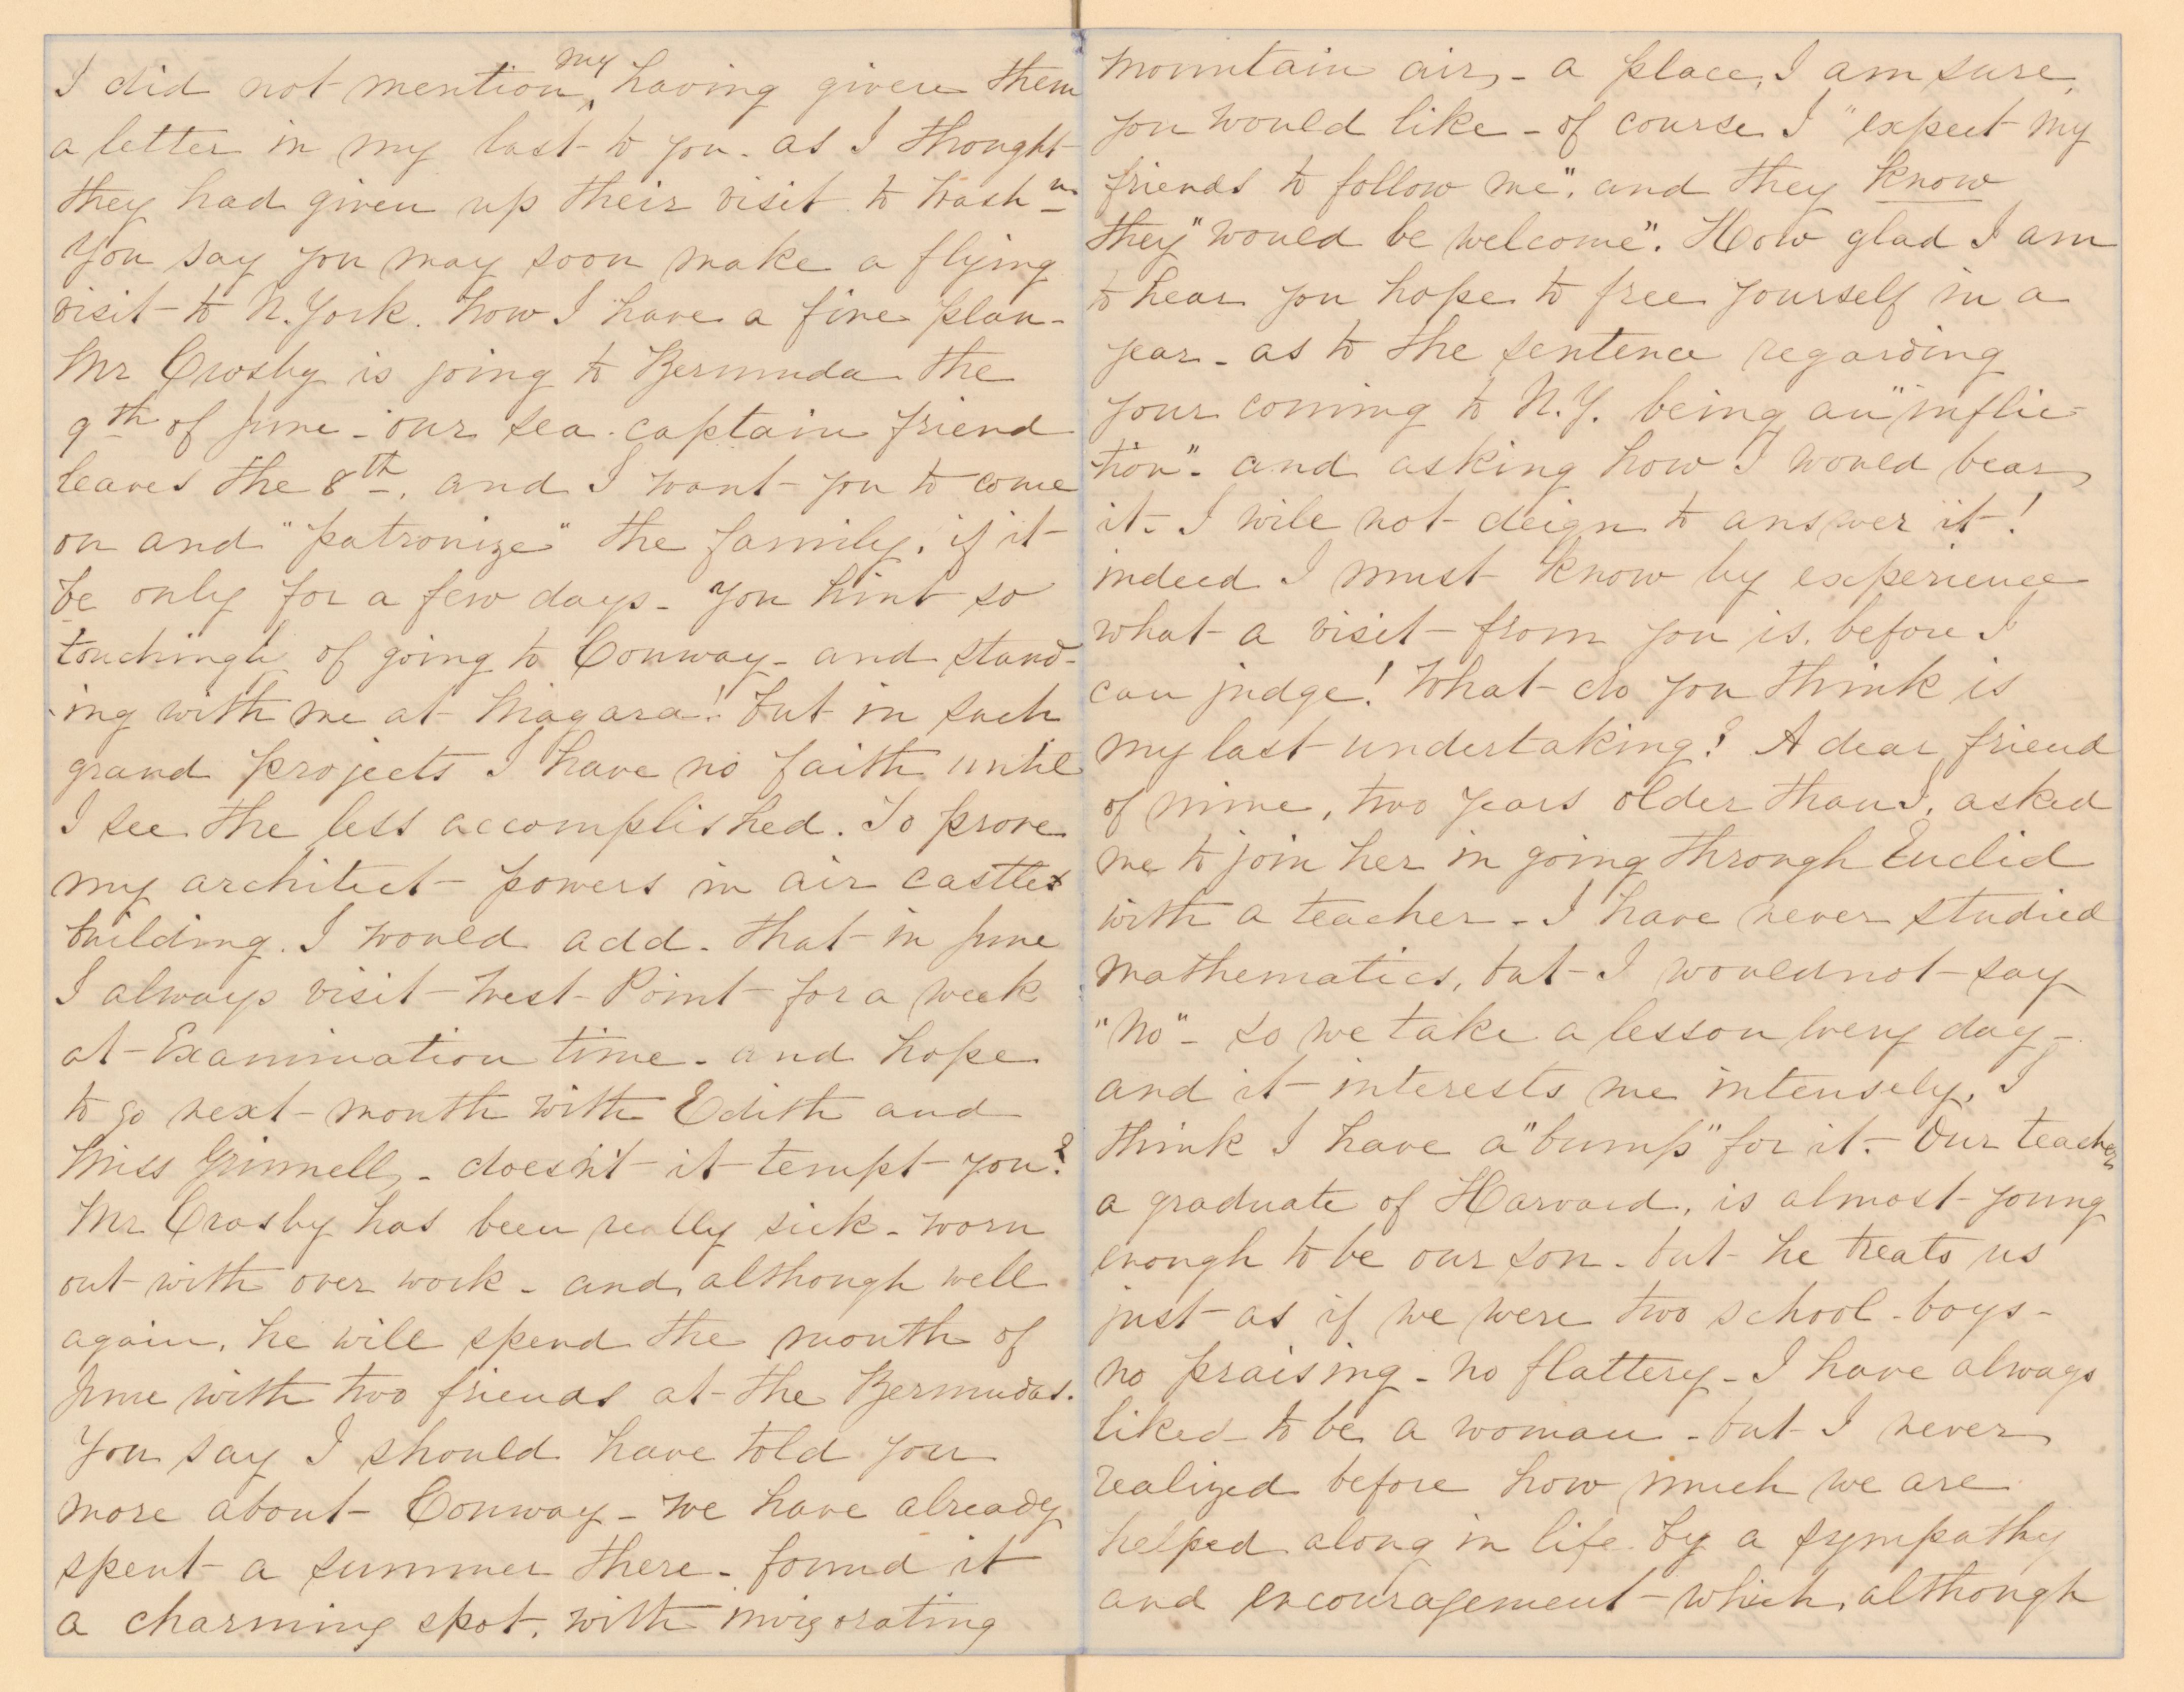 I did not mention my having given them
a letter in my last to you - as I thought
they had given up their visit to Washn
You say you may soon make a flying
visit to N. York. Now I have a fine plan -
Mr Crosby is going to Bermuda the
9th of June - our sea-captain friend
leaves the 8th, and I want you to come
on and "patronize" the family, if it
be only for a few days - You hint so
touchingly of going to Conway - and stand-
ing with me at Niagara! but in such
grand projects I have no faith until
I see the less accomplished. To prove
my architect powers in air castles
building. I would add - that in June
I always visit West-Point for a week
at Examination time - and hope
to go next month with Edith and
Miss Grinnell - doesn't it tempt you?
Mr Crosby has been really sick - worn
out with over work - and, although well
again, he will spend the month of
June with two friends at the Bermudas.
You say I should have told you
more about Conway - We have already
spent a summer there - found it
a charming spot, with invigorating
mountain air, - a place, I am sure,
you would like - of course I "expect my
friends to follow me", and they know
they "would be welcome". How glad I am
to hear you hope to free yourself in a
year - as to the sentence regarding
your coming to N.Y. being an "inflic-
tion" - and asking how I would bear
it - I will not deign to answer it!
indeed I must know by experience
what a visit from you is, before I
can judge! What do you think is
my last undertaking? A dear friend
of mine, two years older than I, asked
me to join her in going through Euclid
with a teacher - I have never studied
mathematics, but I would not say
"No" - so we take a lesson every day -
and it interests me intensely, I
think I have a "bump" for it - Our teacher
a graduate of Harvard, is almost young
enough to be our son - but he treats us
just as if we were two school-boys -
no praising - no flattery - I have always
liked to be a woman - but I never
realized before how much we are
helped along in life by a sympathy
and encouragement - which, although